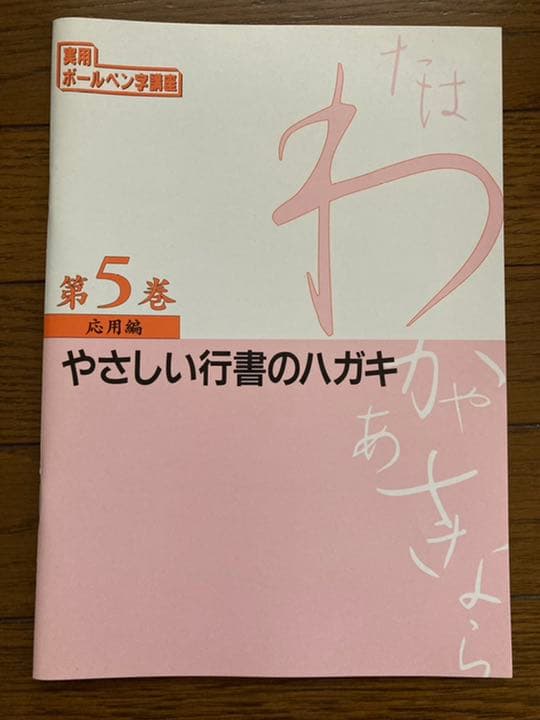 実用
ボールペン字講座
なは
わ
第5巻
応用編
やさしい行書のハガキ
かや
あ
き
な
ら